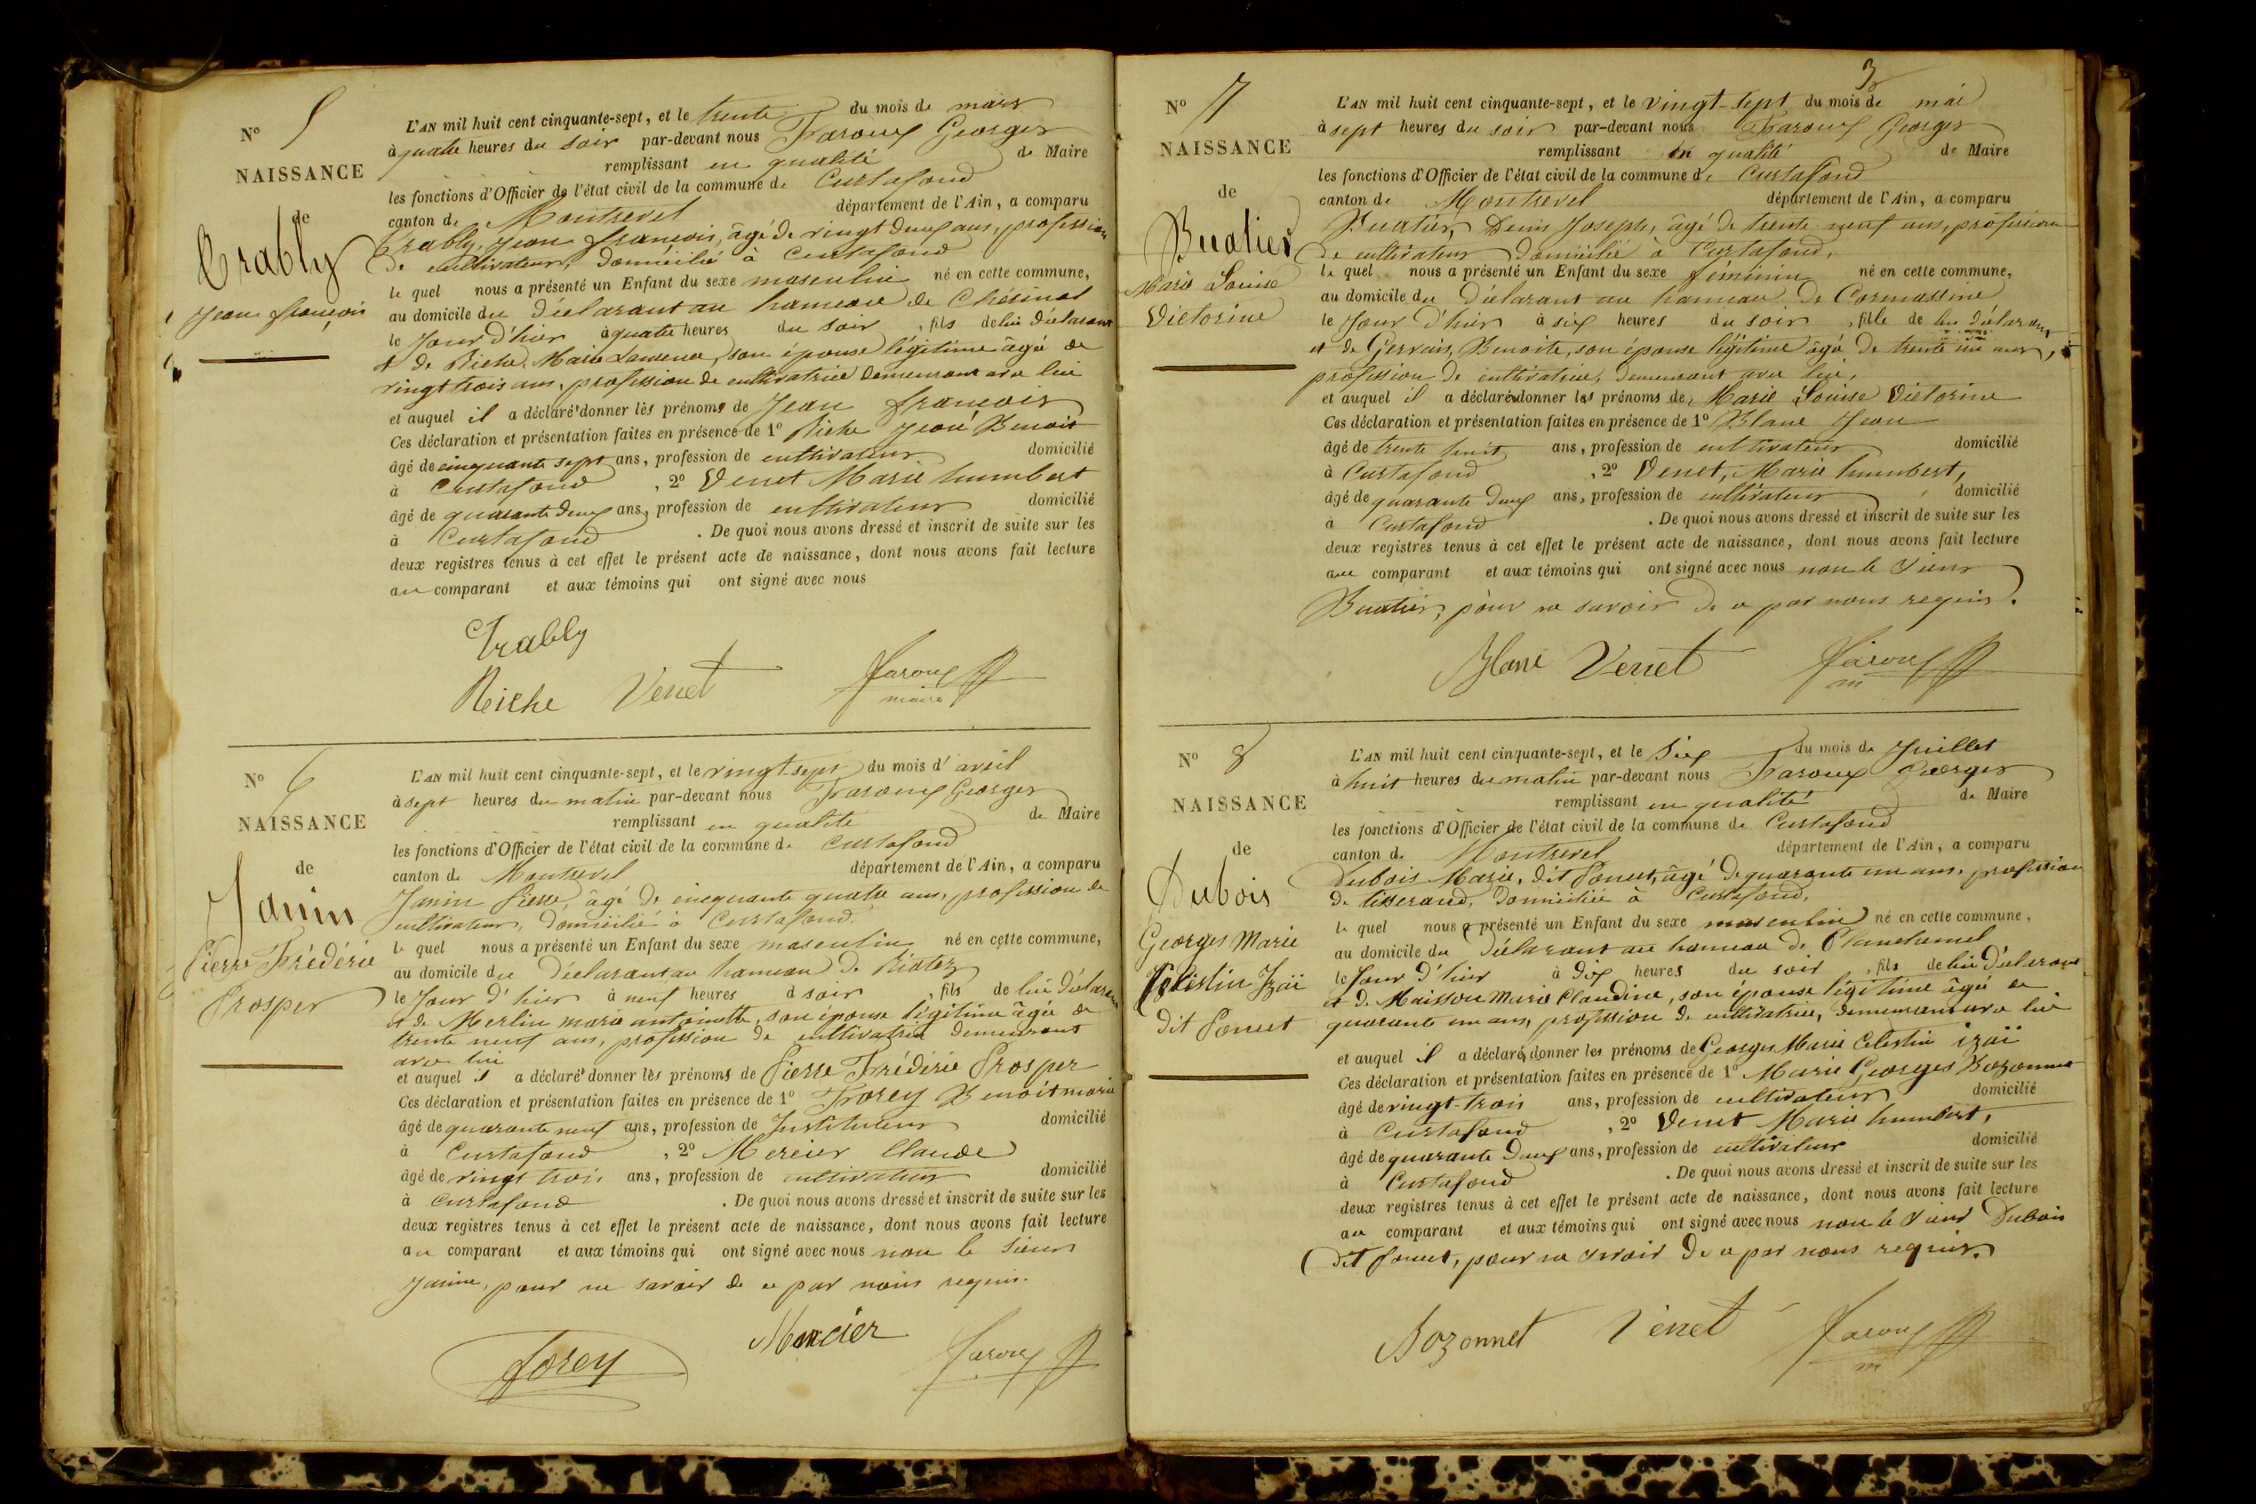 N° 5
NAISSANCE
de
Trably
Jean françois
L'AN mil huit cent cinquante-sept, et le trente du mois de mars
à quatre heures du soir par-devant nous Faroux Georges
remplissant en qualité de Maire
les fonctions d'Officier de l'état civil de la commune de Curtafond
canton de Montrevel département de l'Ain, a comparu
Trably, Jean françois, âgé de vingt deux ans, profession
de cultivateur, domicilié à Curtafond
le quel nous a présenté un Enfant du sexe masculin né en cette commune,
au domicile du déclarant au hameau de
le Jour d'hier à quatre heures du soir, fils de lui déclarant
et de Riche Marie Laurence, son épouse légitime âgée de
vingt trois ans, profession de cultivatrice demeurant avec lui
et auquel il a déclaré donner les prénoms de Jean françois
Ces déclaration et présentation faites en présence de 1° Riche Jean Benoit
âgé de cinquante sept ans, profession de cultivateur domicilié
à Curtafond, 2° Venet Marie humbert
âgé de quarante deux ans, profession de cultivateur domicilié
à Curtafond. De quoi nous avons dressé et inscrit de suite sur les
deux registres tenus à cet effet le présent acte de naissance, dont nous avons fait lecture
au comparant et aux témoins qui ont signé avec nous
Trably
Riche Venet Faroux
maire
N° 6
NAISSANCE
de
Janin
Pierre Frédéric
Prosper
L'AN mil huit cent cinquante-sept, et le vingt-sept du mois d'avril
à sept heures du matin par-devant nous Faroux Georges
remplissant en qualité de Maire
les fonctions d'Officier de l'état civil de la commune de Curtafond
canton de Montrevel département de l'Ain, a comparu
Janin Pierre, âgé de cinquante quatre ans, profession de
cultivateur, domicilié à Curtafond.
le quel nous a présenté un Enfant du sexe masculin né en cette commune,
au domicile du déclarant au hameau de
le Jour d'hier à neuf heures d soir, fils de lui déclarant
et de Merlin marie antoinette, son épouse légitime âgée de
trente neuf ans, profession de cultivatrice demeurant
avec lui
et auquel il a déclaré donner les prénoms de Pierre Frédéric Prosper
Ces déclaration et présentation faites en présence de 1° Forey Benoit marie
âgé de quarante neuf ans, profession de Instituteur domicilié
à Curtafond, 2° Mercier Claude
âgé de vingt trois ans, profession de cultivateur domicilié
à Curtafond. De quoi nous avons dressé et inscrit de suite sur les
deux registres tenus à cet effet le présent acte de naissance, dont nous avons fait lecture
au comparant et aux témoins qui ont signé avec nous non le sieur
Janin, pour ne savoir de ce par nous requis.
Forey Mercier Faroux
3
N° 7
NAISSANCE
de
Buatier
Marie Louise
Victorine
L'AN mil huit cent cinquante-sept, et le vingt-sept du mois de mai
à sept heures du soir par-devant nous Faroux Georges
remplissant en qualité de Maire
les fonctions d'Officier de l'état civil de la commune de Curtafond
canton de Montrevel département de l'Ain, a comparu
Buatier, Denis Joseph, âgé de trente neuf ans, profession
de cultivateur domicilié à Curtafond.
le quel nous a présenté un Enfant du sexe féminin né en cette commune,
au domicile du déclarant au hameau de Cormassine
le Jour d'hier à six heures du soir, fille de lui déclarant
et de Gervais, Benoite, son épouse légitime âgé de trente un ans,
profession de cultivatrice, demeurant avec lui,
et auquel il a déclaré donner les prénoms de, Marie Louise Victorine
Ces déclaration et présentation faites en présence de 1° Blanc Jean
âgé de trente huit ans, profession de cultivateur domicilié
à Curtafond, 2° Venet, Marie humbert,
âgé de quarante deux ans, profession de cultivateur domicilié
à Curtafond. De quoi nous avons dressé et inscrit de suite sur les
deux registres tenus à cet effet le présent acte de naissance, dont nous avons fait lecture
au comparant et aux témoins qui ont signé avec nous non le sieur
Buatier, pour ne savoir de ce par nous requis.
Blanc Venet Faroux
m
N° 8
NAISSANCE
de
Dubois
Georges Marie
Célestin Izaï
dit Ponut
L'AN mil huit cent cinquante-sept, et le Six du mois de Juillet
à huit heures du matin par-devant nous Faroux Georges
remplissant en qualité de Maire
les fonctions d'Officier de l'état civil de la commune de Curtafond
canton de Montrevel département de l'Ain, a comparu
Dubois Marie, dit Ponut, âgé de quarante un ans, profession
de tisserand, domicilié à Curtafond,
le quel nous a présenté un Enfant du sexe masculin né en cette commune,
au domicile du déclarant au hameau de
le Jour d'hier à dix heures du soir, fils de lui déclarant
et de Maisson Marie Claudine, son épouse légitime âgée de
quarante un ans, profession de cultivatrice, demeurant avec lui
et auquel il a déclaré donner les prénoms de Georges Marie Célestin izaï
Ces déclaration et présentation faites en présence de 1° Marie Georges Bozonnet
âgé de vingt-trois ans, profession de cultivateur domicilié
à Curtafond, 2° Venet Marie humbert,
âgé de quarante deux ans, profession de cultivateur domicilié
à Curtafond. De quoi nous avons dressé et inscrit de suite sur les
deux registres tenus à cet effet le présent acte de naissance, dont nous avons fait lecture
au comparant et aux témoins qui ont signé avec nous non le sieur Dubois
dit Ponut, pour ne savoir de ce par nous requis.
Bozonnet Venet Faroux
m